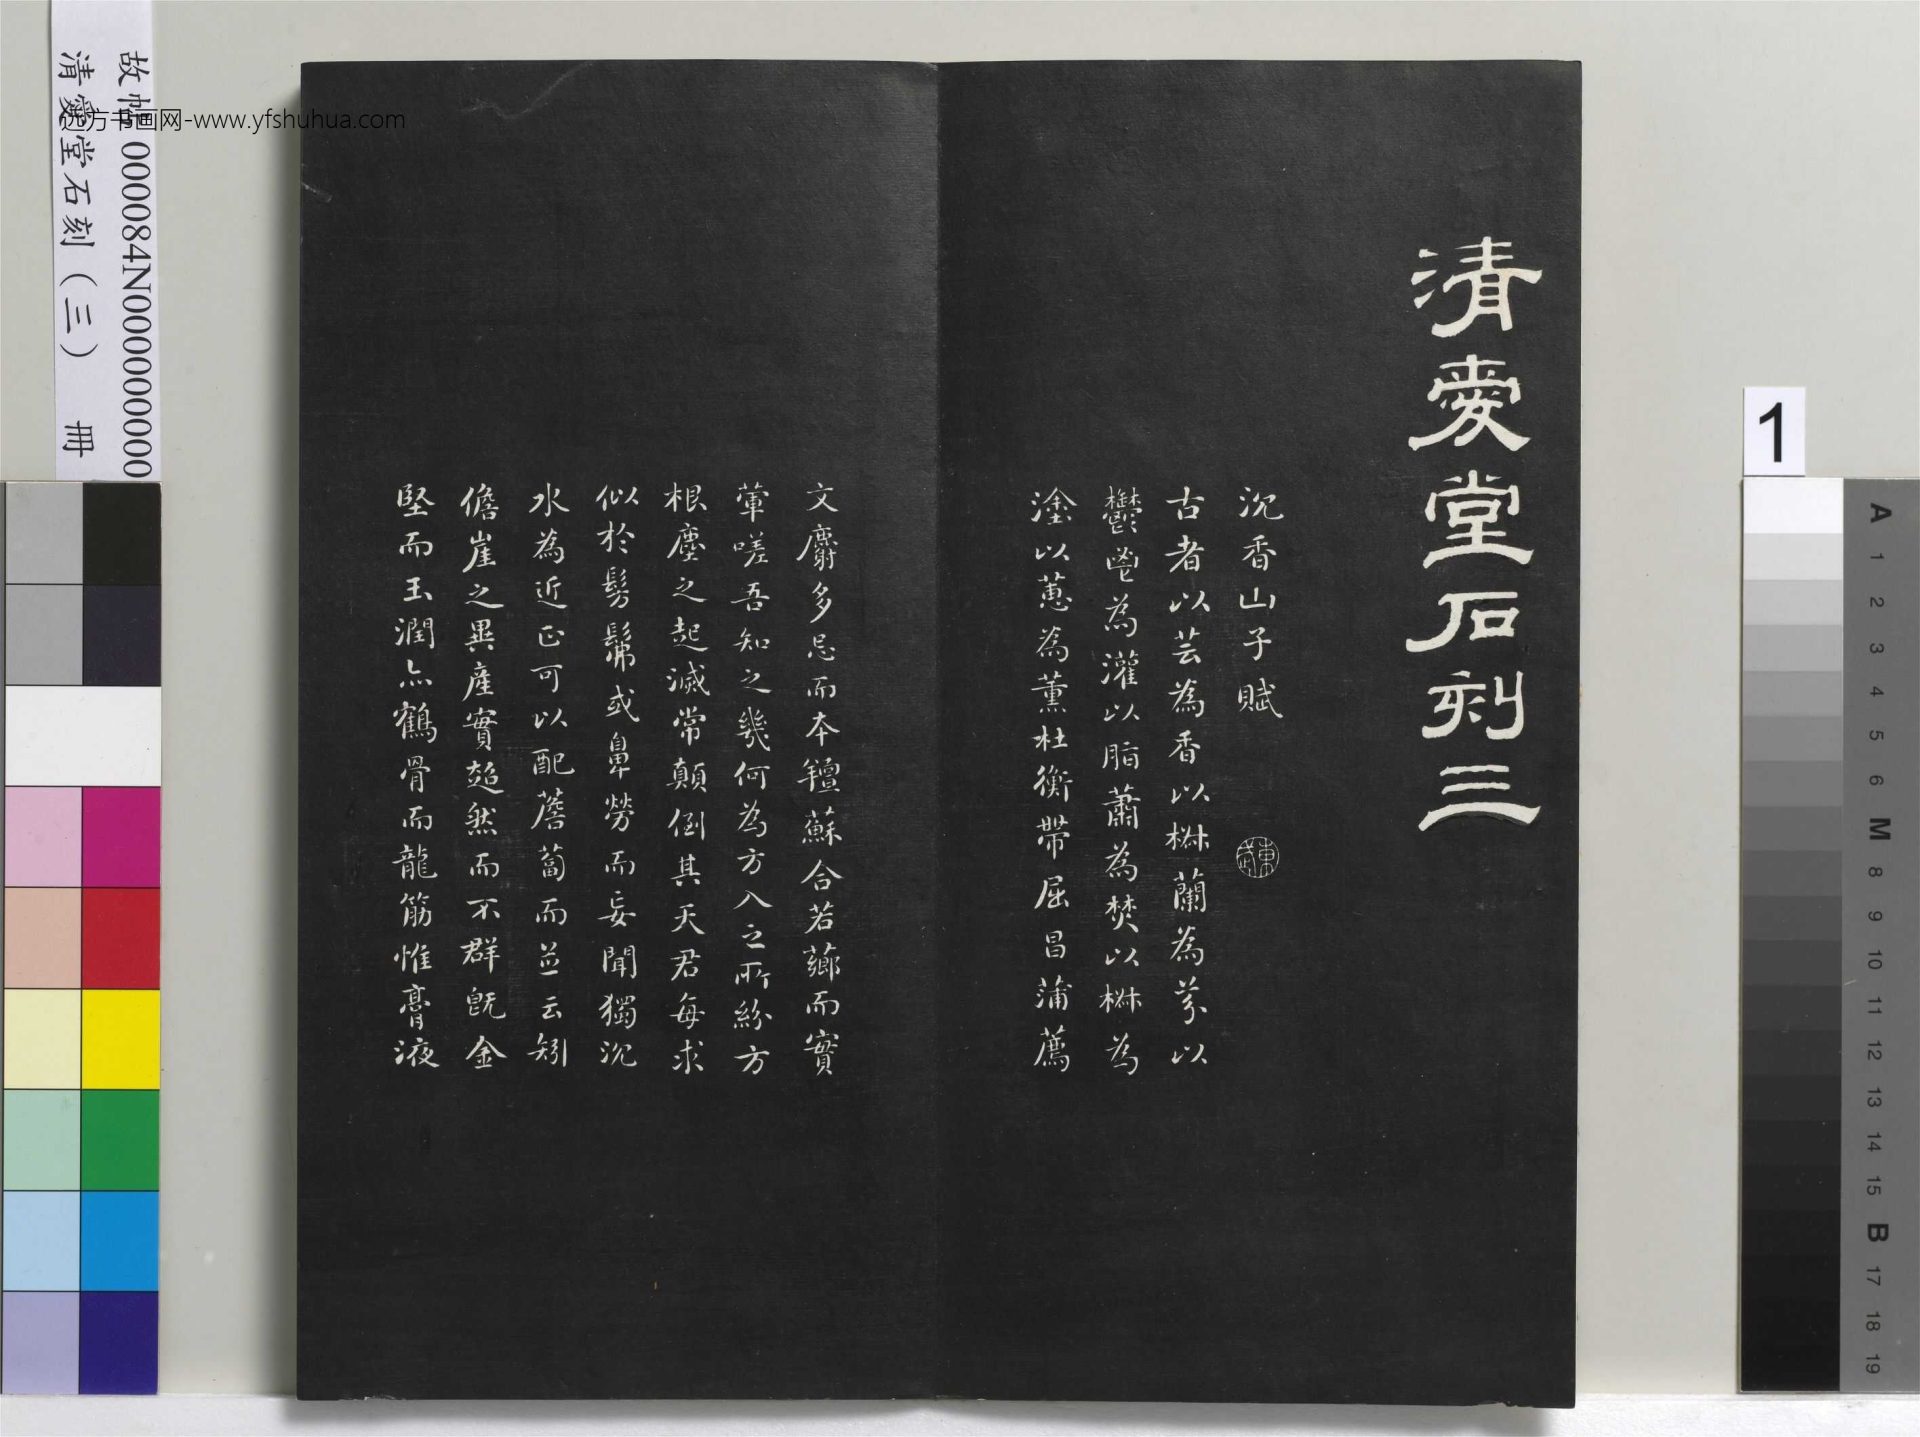 清愛堂石刻三
沉香山子賦
東武
古者以芸為香以椒蘭為芬以
鬱鬯為灌以脂蕭為焚以椒為
塗以蕙為薰杜衡帶屈昌蒲薦
文麝多忌而本羶蘇合若薌而實
葷嗟吾知之幾何為方入之所紛方
根塵之起滅常顛倒其天君每求
似於髣髴或鼻勞而妄聞獨沉
水為近正可以配薝蔔而並云矧
儋崖之異產實超然而不群既金
堅而玉潤亦鶴骨而龍筋惟膏液
故帖 000084N000000000
清愛堂石刻（三） 冊
远方书画网-www.yfshuhua.com
1
A
1
2
3
4
5
6
M
8
9
10
11
12
13
14
15
B
17
18
19